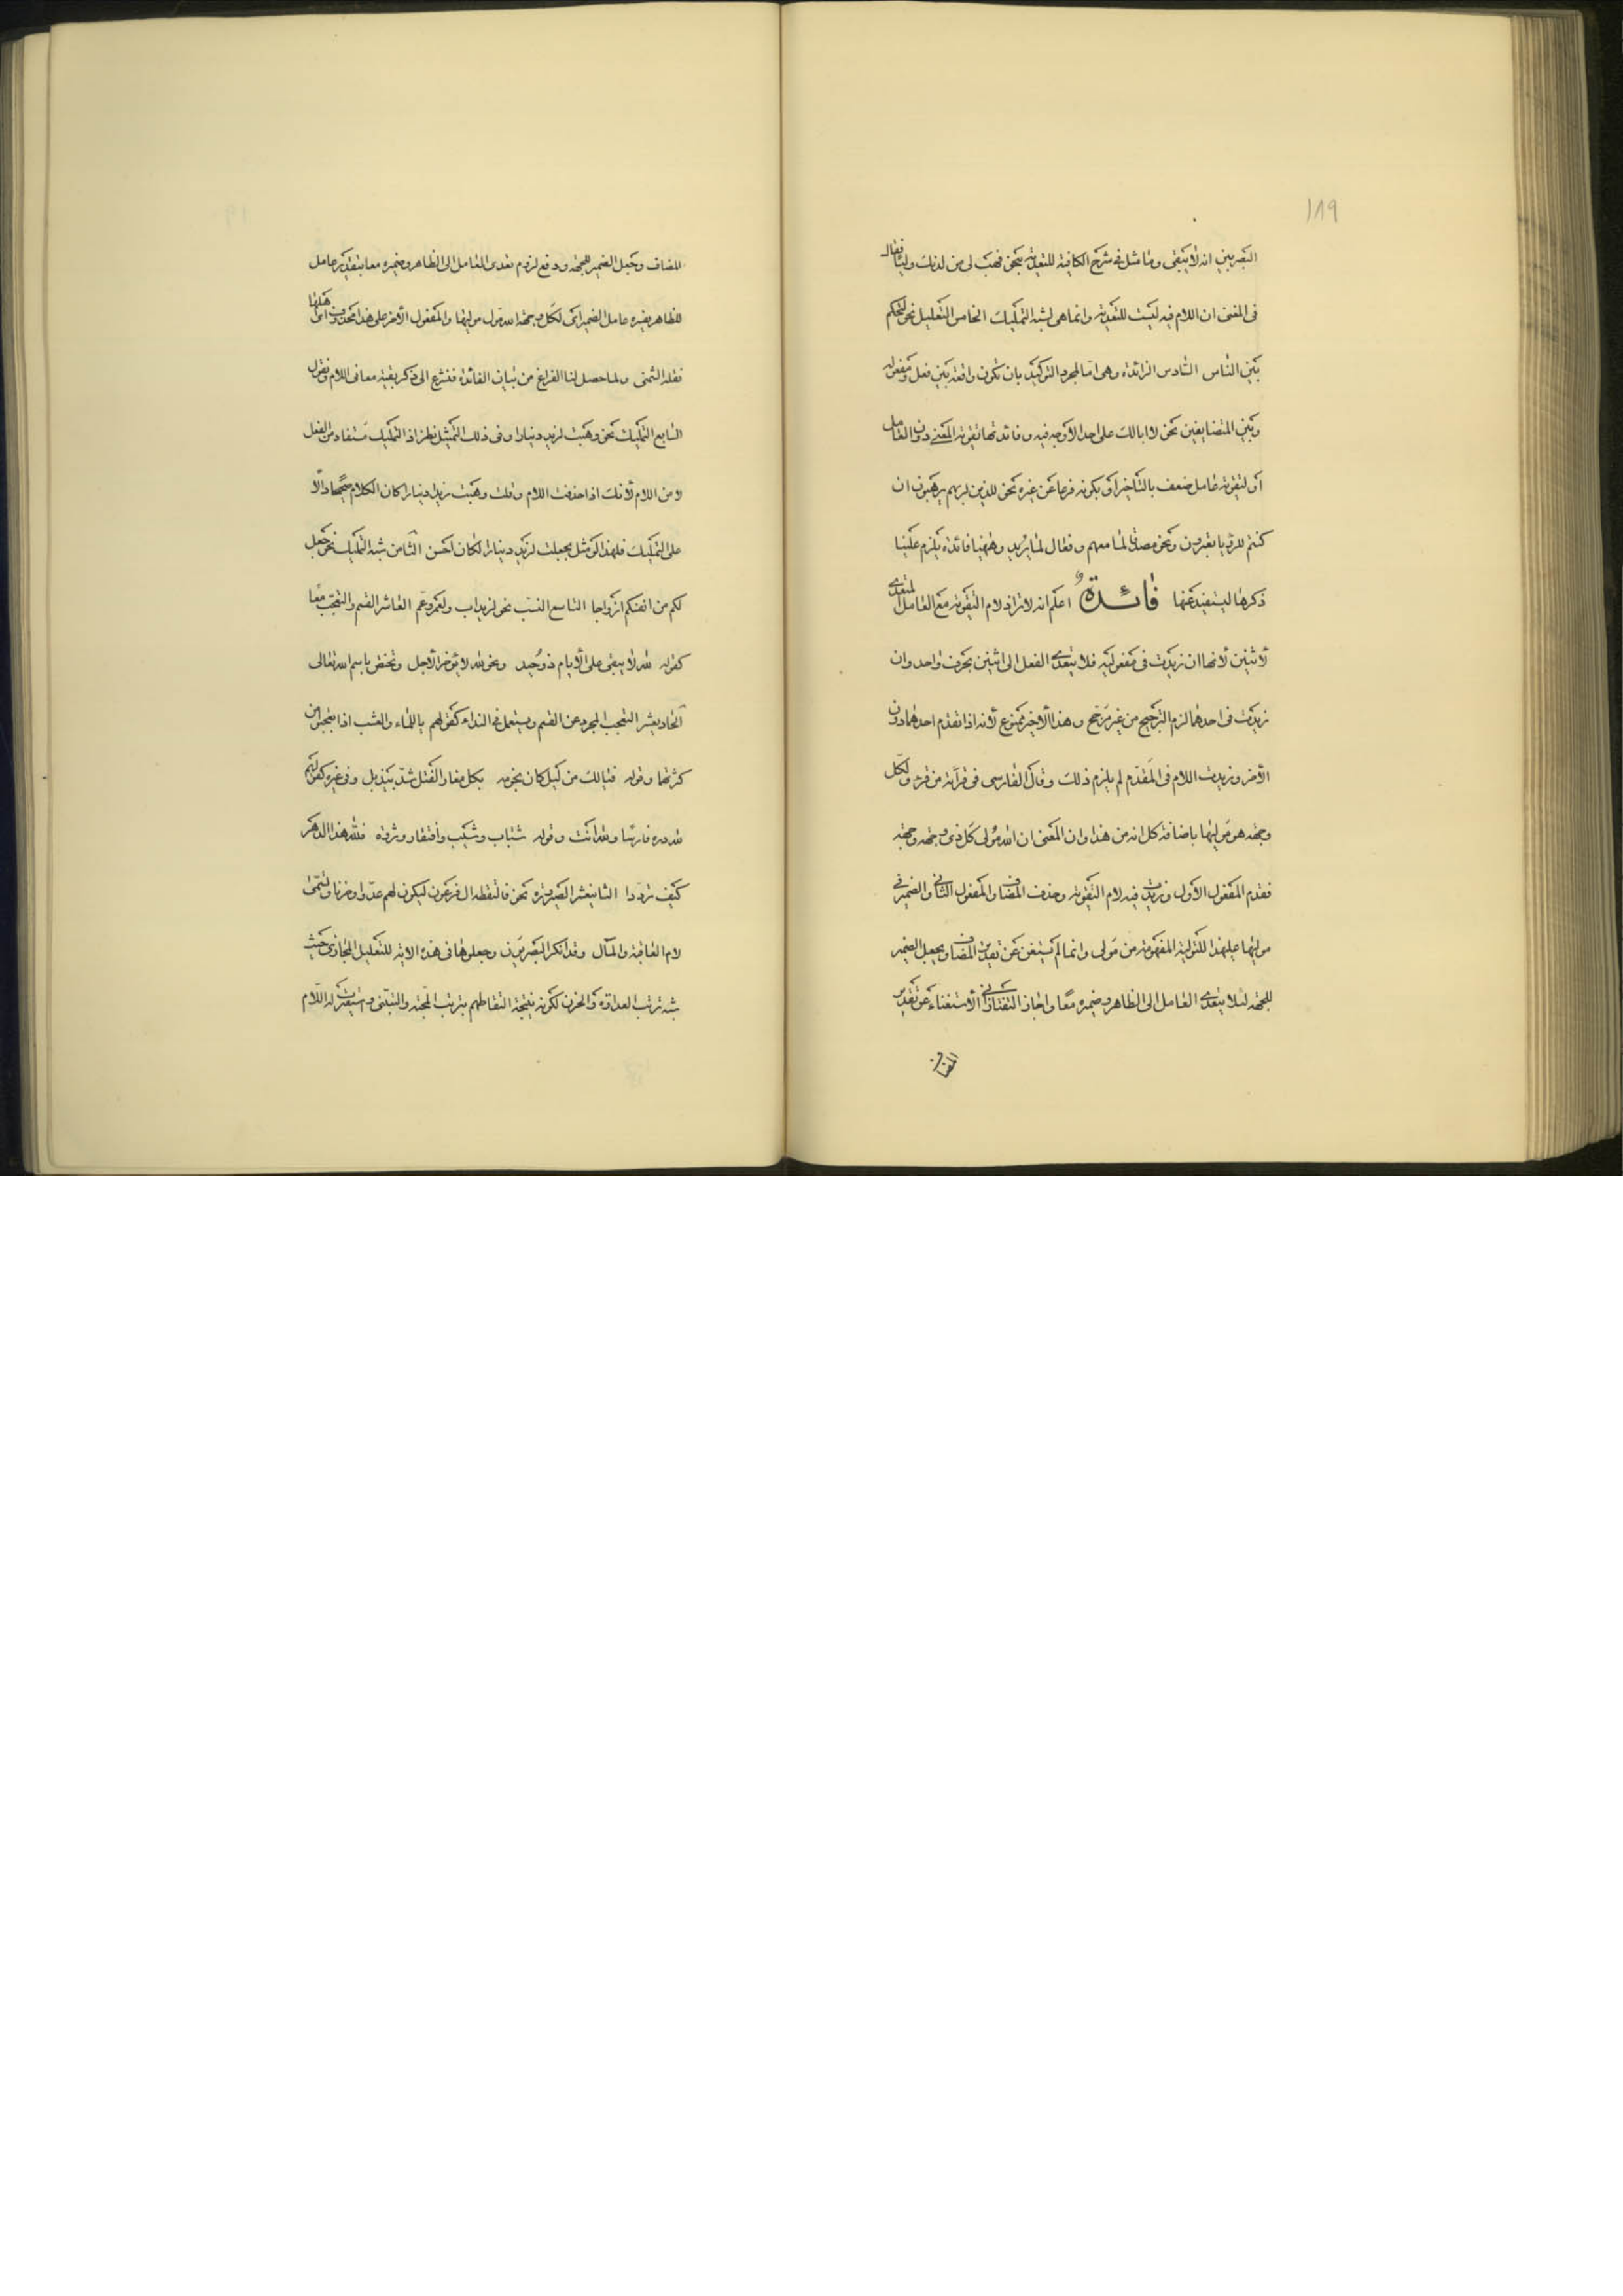 ١٨٩
البصريين انه لا يبقى وما مثل فى شرح الكافية للتعدية بنحو فهب لى من لدنك وليا فقال
فى المغنى ان اللام فيه ليست للتعدية وانما هى لشبه التمليك الخامس التعليل نحو لتحكم
بين الناس السادس الزائدة وهى اما لمجرد التوكيد بان تكون واقعة بين فعل ومفعوله
وبين المتضايفين نحو لا ابا لك على احد الاوجه فيه وفائدتها تقوية المعنى دون العامل
او لتقوية عامل ضعف بالتاخير او بكونه فرعا عن غيره نحو للذين لربهم يرهبون ان
كنتم للرؤيا تعبرون ونحو مصدقا لما معهم وفعال لما يريد وههنا فائدة يلزم علينا
ذكرها ليستفيد عنها فائدةٌ اعلم انه لا تزاد لام التقوية مع العامل المتعدى
لاثنين لانها ان زيدت فى مفعوليه فلا يتعدى الفعل الى اثنين بحرف واحد وان
زيدت فى احدهما لزم الترجيح من غير مرجح وهذا الاخير ممنوع لانه اذا تقدم احدهما دون
الآخر وزيدت اللام فى المقدم لم يلزم ذلك وقال الفارسى فى قرآءة من قرء ولكل
وجهة هو موليها باضافة كل انه من هذا وان المعنى ان الله مولى كل ذى وجهة وجهته
فقدم المفعول الاول وزيدت فيه لام التقوية وحذف المضاف والمفعول الثانى والضمير فى
موليها عليهذا للتولية المفهومة من مولى وانما لم يستغن عن تقدير المضاف ويجعل الضمير
للجهة لئلا يتعدى العامل الى الظاهر وضميره معًا واجاز التفتازانى الاستغناء عن تقدير
المضاف
المضاف وجعل الضمير للجهة ودفع لزوم تعدى العامل الى الظاهر وضميره معا بتقدير عامل
للظاهر يغير عامل الضمير اى لكل وجهة الله مول موليها والمفعول الآخر على هذا محذوف اى اهلها
نقله الشمنى ولما حصل لنا الفراغ من بيان الفائدة فنشرع الى ذكر بقية معانى اللام ونقول
السابع التمليك نحو وهبت لزيد دينارا وفى ذلك التمثيل نظر اذ التمليك مستفاد من الفعل
لا من اللام لانك اذا حذفت اللام وقلت وهبت زيدا دينارا كان الكلام صحيحا دالّا
على التمليك فلهذا لو مثل بجعلت لزيد دينارا لكان احسن الثامن شبه التمليك نحو جعل
لكم من انفسكم ازواجا التاسع النسب نحو لزيد اب ولعمرو عم العاشر القسم والتعجب معًا
كقوله لله لا يبقى على الايام ذو حيد ونحو لله لا يؤخر الاجل وتختص باسم الله تعالى
الحاديعشر التعجب المجرد عن القسم ويستعمل فى النداء كقولهم يا للماء والعشب اذا تعجبوا من
كثرتها وقوله فيا لك من ليل كان نجومه بكل مغار الفتل شدّت بيذبل وفى غيره كقولهم
لله دره فارسًا ولله انت وقوله شباب وشيب وافتقار وثروة فلله هذا الدهر
كيف تردّدا الثانيعشر الصيرورة نحو فالتقطه ال فرعون ليكون لهم عدّوا وحزنا وتسمّى
لام العاقبة والمآل وقد انكر البصريون وجعلوها فى هذه الاية للتعليل المجازى حيث
شبه ترتب العداوة والحزن لكونه نتيجة التقاطهم بترتب المحبة والتبنّى واستعيرت له اللّام